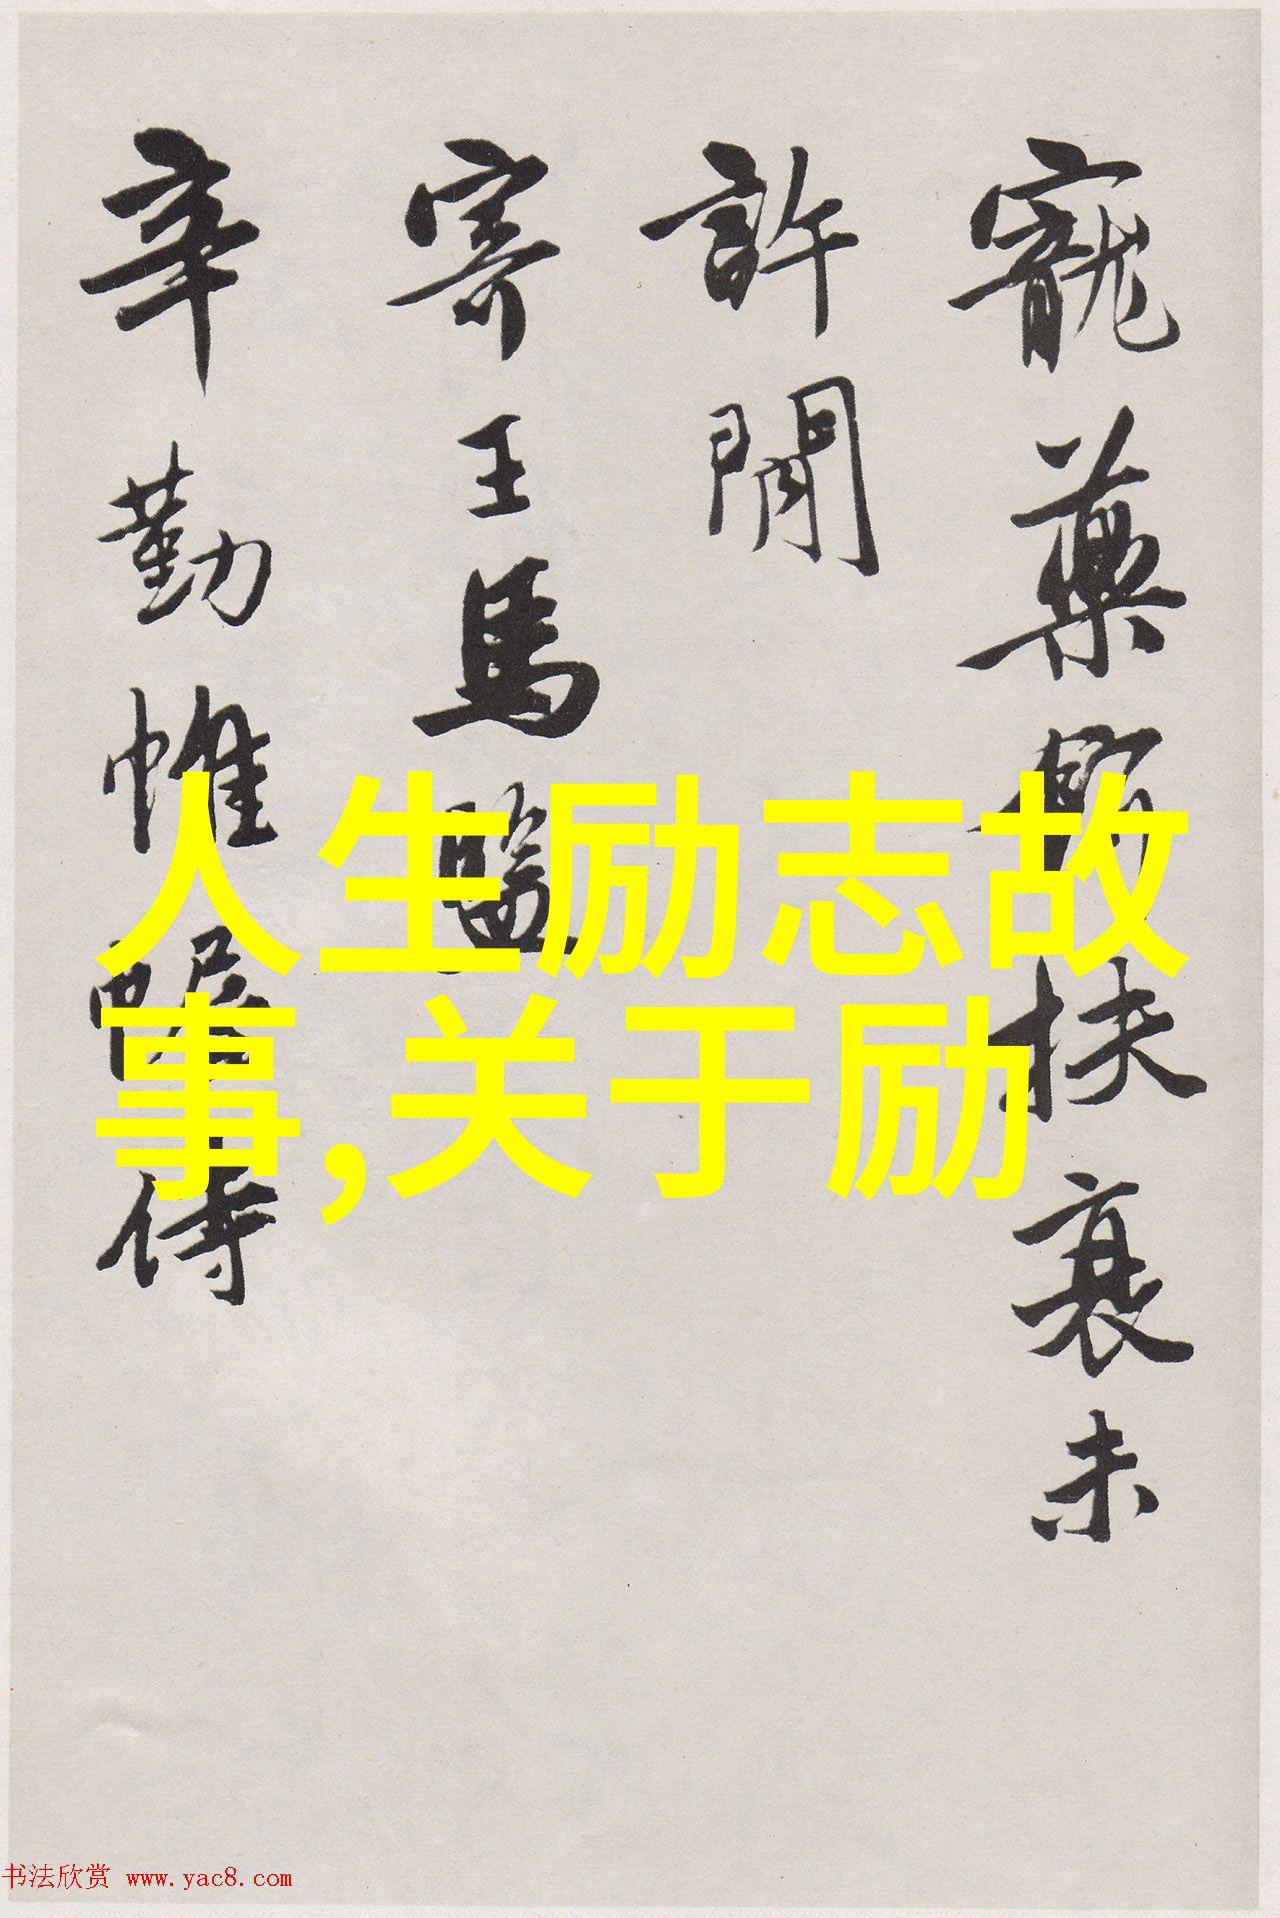 寵藥餌扶衰未
許閒
寄王馬醫
辛勤帷幄侍
人生励志故
事,关于励
书法欣赏 www.yac8.com